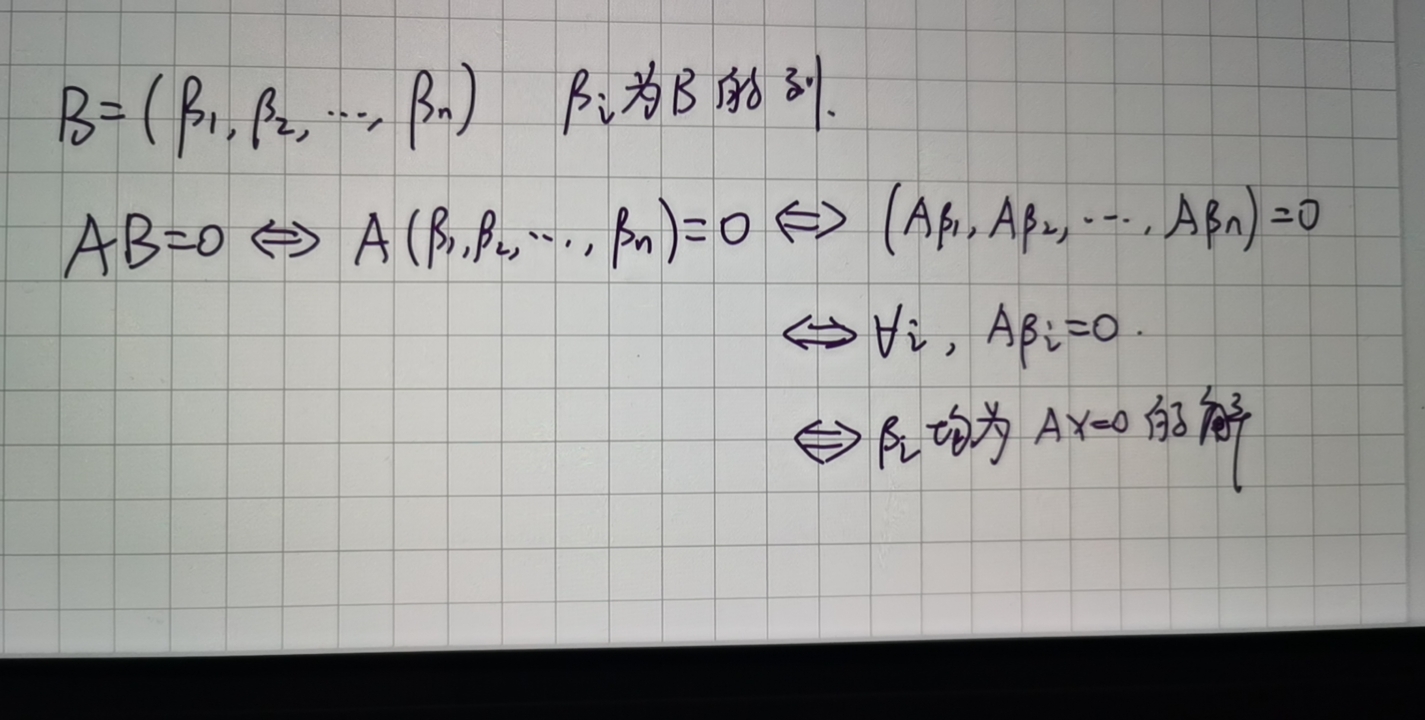 B=(β₁, β₂, ⋯, βₙ) βᵢ为B的列.
AB=0 ⇔ A(β₁,β₂,⋯,βₙ)=0 ⇔ (Aβ₁, Aβ₂, ⋯, Aβₙ)=0
⇔ ∀i, Aβᵢ=0.
⇔ βᵢ均为 AX=0 的解